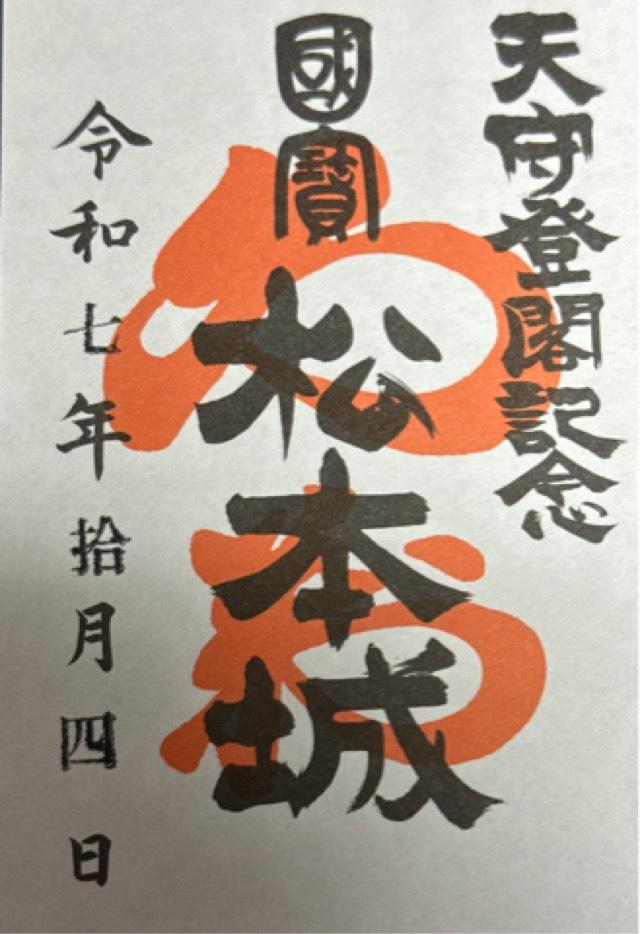 天守登閣記念
國寶
松本城
令和七年拾月四日